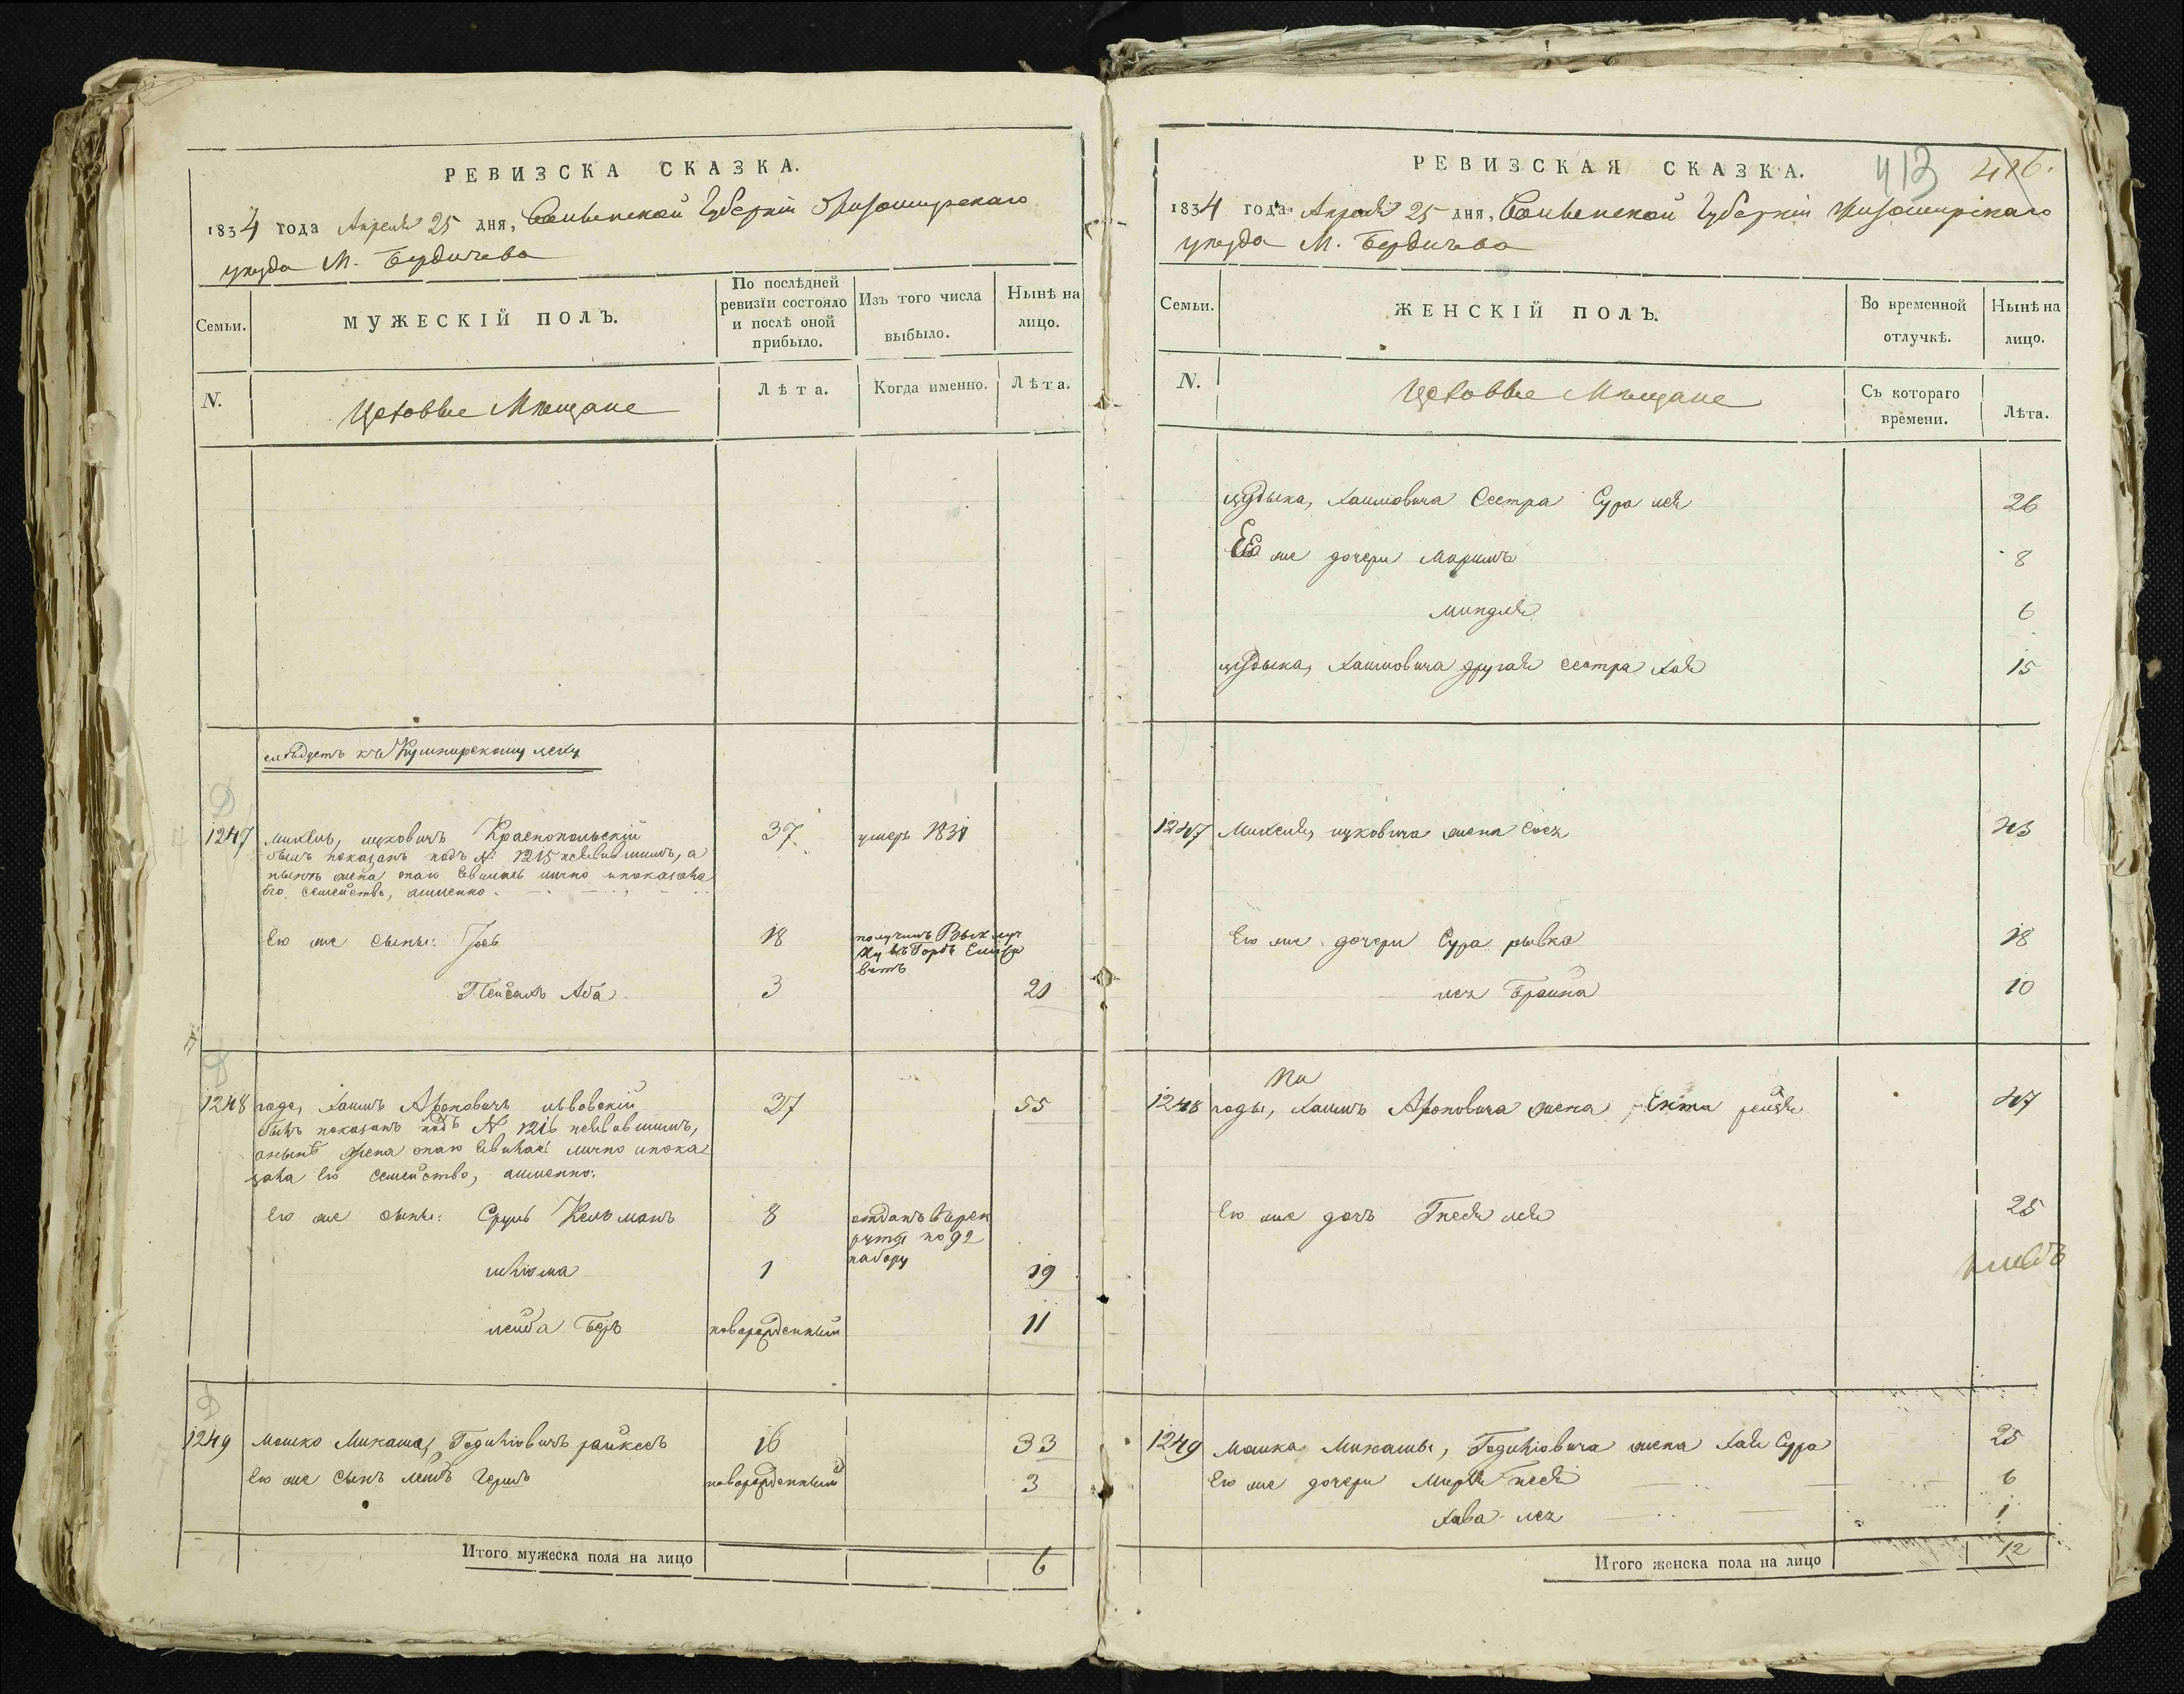 РЕВИЗСКА СКАЗКА.
1834 года Апреля 25 дня, Волынской Губерніи Житомирскаго
уезда М. Бердичева
Семьи.
МУЖЕСКІЙ ПОЛЪ.
По послѣдней
ревизіи состояло
и послѣ оной
прибыло.
Изъ того числа
выбыло.
Нынѣ на
лицо.
N.
Цеховые Мѣщане
Лѣта.
Когда именно.
Лѣта.
слѣдуетъ къ Кушнирскому цеху
1247 Михель, ицковичъ Краснопольскій 37 умеръ 1831
былъ показанъ подъ № 1215 неявившимъ, а
нынѣ жена онаго явилась лично и показана
его семейство, аименно
Его же сыны: Іось 18 получилъ
въ Горде
Пейсахъ Аба 3 21
1248 Хаимъ Ароновичъ львовскій 37 55
былъ показанъ подъ № 1216 неявившимъ,
анынѣ жена онаго явилась лично и пока
зана его семейство, аименно:
Его же сыны: Сруль Кельманъ 8 отданъ врек
руты по 92
набору
шліома 1 19
лейба Беръ новорожденный 11
1249 Мошко Микаша, Гедиліовичъ райхесъ 16 33
Его же сынъ лейбъ Гершъ новорожденный 3
Итого мужеска пола на лицо 6
РЕВИЗСКАЯ СКАЗКА.
413 416.
1834 года Апреля 25 дня, Волынской Губерніи Житомирскаго
уезда М. Бердичева
Семьи.
ЖЕНСКІЙ ПОЛЪ.
Во временной
отлучкѣ.
Нынѣ на
лицо.
N.
Цеховые Мѣщане
Съ котораго
времени.
Лѣта.
Хаимовича Сестра Сура лея 26
Ея же дочери Маримъ 8
миндля 6
Хаимовича другая сестра Хая 15
1247 Михеля, ицковича жена 43
Его же дочери Сура рывка 18
лея Брайна 10
1248 Хаимъ Ароновича жена Ента рейзя 47
Его же дочь Гнеся лея 25
1249 Мошка Микашы, Гедиліовича жена Хая Сура 25
Его же дочери Мирля песя 6
Хава лея 1
Итого женска пола на лицо 12